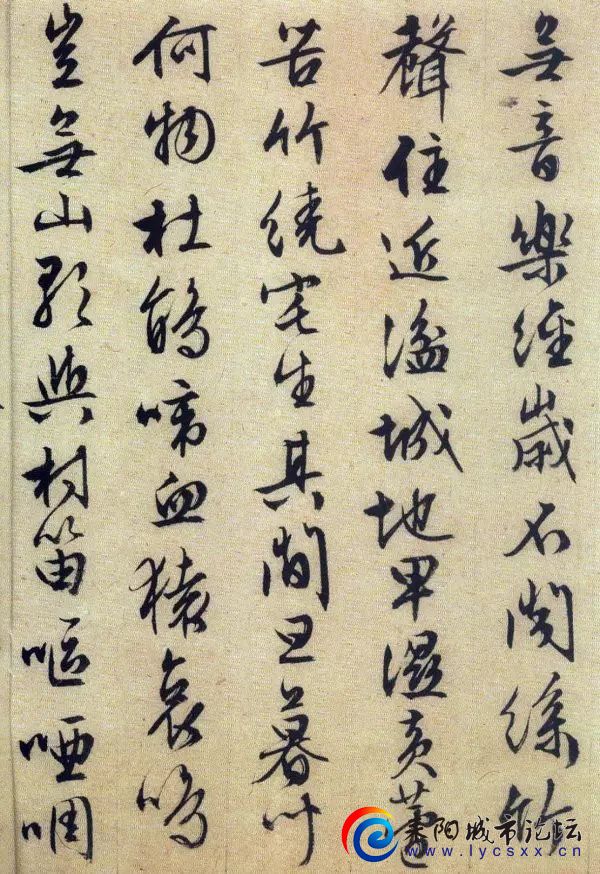 無音樂經歲不聞絲竹
聲住近湓城地卑濕黃蘆
苦竹繞宅生其間旦暮
何物杜鵑啼血猿哀鳴
豈無山歌與村笛嘔啞啁
耒阳城市论坛
www.lycsxx.cn